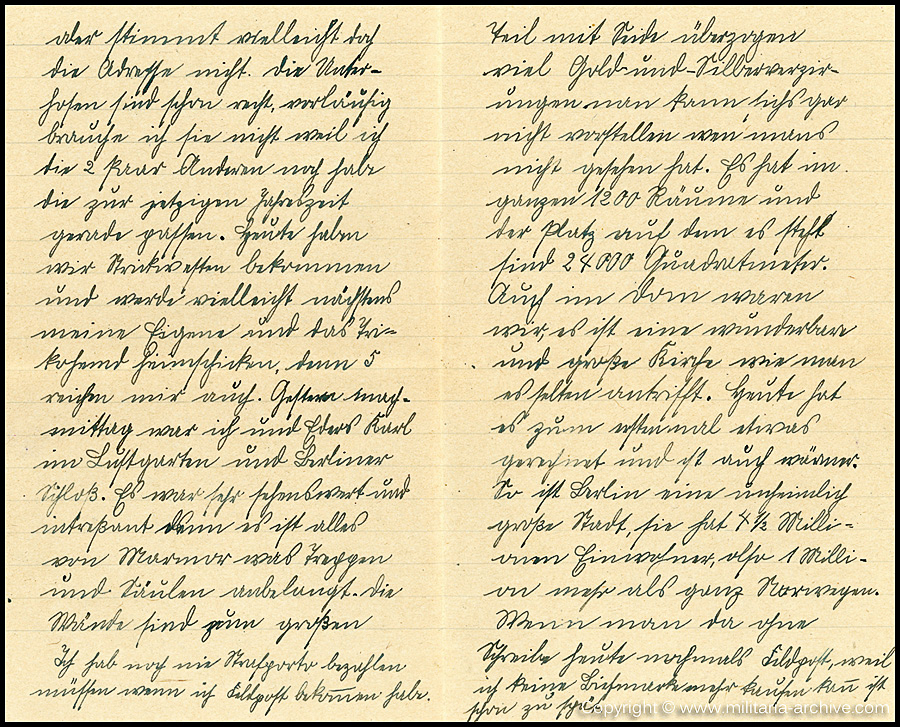 aber stimmt vielleicht doch
die Adresse nicht. Die Unter-
hosen sind schon recht, vorläufig
brauche ich sie nicht weil ich
die 2 Paar Anderen noch habe
die zur jetzigen Jahreszeit
gerade passen. Heute haben
wir Strickwesten bekommen
und werde vielleicht nächstens
meine Eigene und das Tri-
kohemd heimschicken, denn 5
reichen mir auch. Gestern nach-
mittag war ich und Eders Karl
im Lustgarten und Berliner
Schloß. Es war sehr sehenswert und
intreßant denn es ist alles
von Marmor was Treppen
und Säulen anbelangt. Die
Wände sind zum großen
Ich hab noch nie Strafporto bezahlen
müssen wenn ich Feldpost bekommen habe.
Teil mit Seide überzogen
viel Gold-und-Silberverzir-
ungen man kann sichs gar
nicht vorstellen wen mans
nicht gesehen hat. Es hat im
ganzen 1200 Räume und
der Platz auf dem es steht
sind 24000 Quadratmeter.
Auch im Dom waren
wir, es ist eine wunderbare
und große Kirche wie man
es selten antrifft. Heute hat
es zum erstenmal etwas
geregnet und ist auch wärmer.
So ist Berlin eine unheimlich
große Stadt, sie hat 4½ Milli-
onen Einwohner, also 1 Milli-
on mehr als ganz Norwegen.
Wenn man da ohne
Schreibe heute nochmals Feldpost, weil
ich keine Briefmarke mehr kaufen kann ist
schon zu spät
Copyright © www.militaria-archive.com